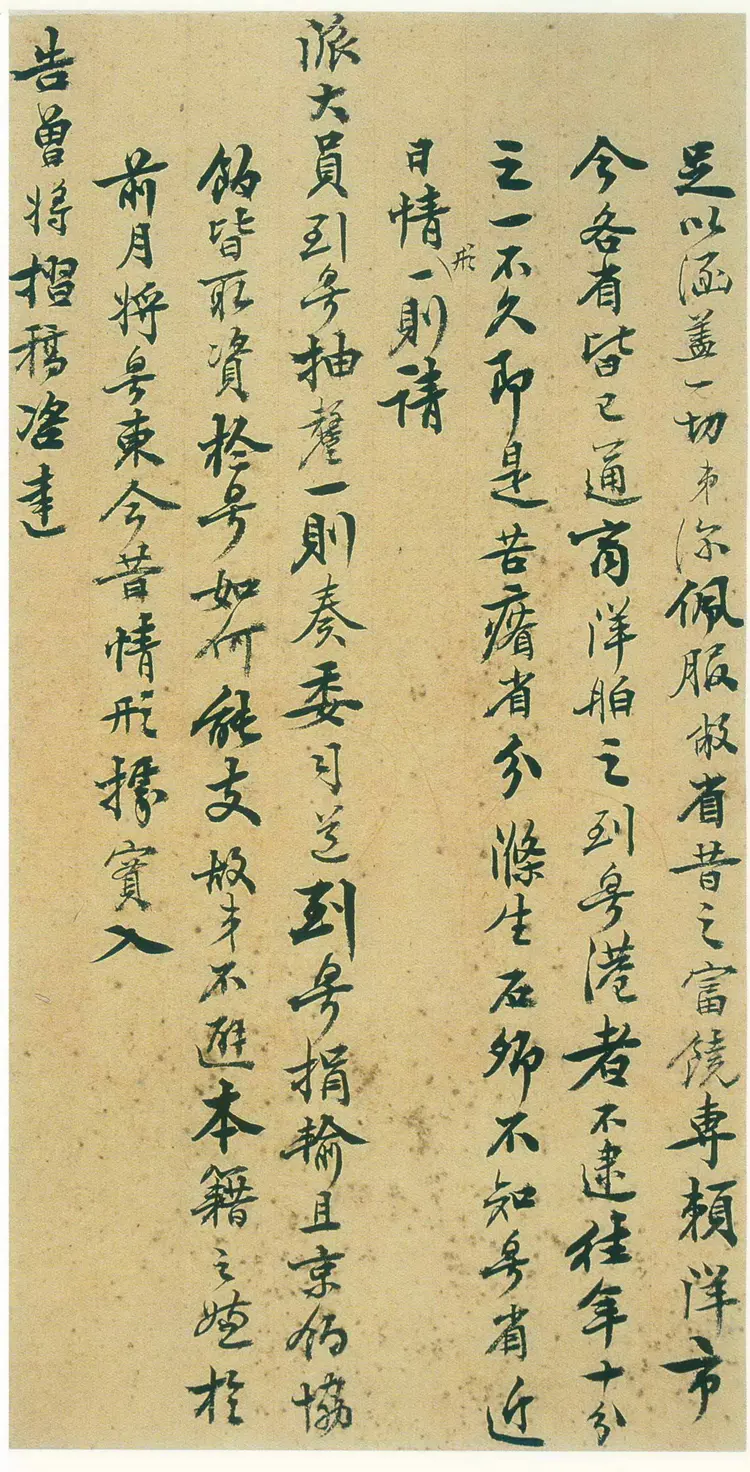 足以涵蓋一切弟深佩服敝省昔之富饒專賴洋市
今各省皆已通商洋舶之到粵港者不逮往年十分
之一不久即是苦瘠省分滌生石卿不知粵省近
日情形一則請
派大員到粵抽釐一則奏委司道到粵捐輸且京餉協
餉皆取資於粵如何能支故弟不避本籍之嫌於
前月將粵東今昔情形據實入
告曾將摺稿咨達